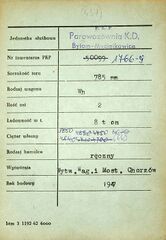 Jednostka służbowa P.K.P.
Parowozownia K.D.
Bytom-Karb
Nr inwentarza PKP 50099 1766-S
Szerokość toru 785 mm
Rodzaj wagonu Wh
Ilość osi 2
Ładowność w t. 8 ton
Ciężar własny
Rodzaj hamulca ręczny
Wytwórnia Wytw. Wag. i Most. Chorzów
Rok budowy 1947